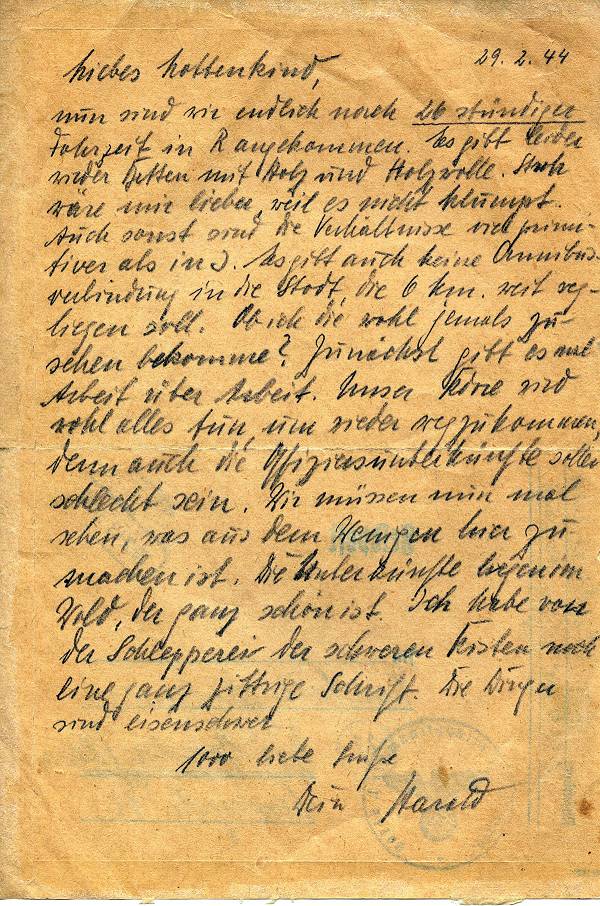 29. 2. 44
Liebes Lottenkind,
nun sind wir endlich nach 26 stündiger
Fahrzeit in R angekommen. Es gibt leider
wieder Betten mit Holz und Holzwolle. Stroh
wäre mir lieber, weil es nicht klumpt.
Auch sonst sind die Verhältnisse viel primi-
tiver als in J. Es gibt auch keine Omnibus-
verbindung in die Stadt, die 6 km. weit weg-
liegen soll. Ob ich die wohl jemals zu
sehen bekomme? Zunächst gibt es mal
Arbeit über Arbeit. Unser wird
wohl alles tun, um wieder wegzukommen,
denn auch die Offiziersunterkünfte sollen
schlecht sein. Wir müssen nun mal
sehen, was aus dem Wenigen hier zu
machen ist. Die Unterkünfte liegen im
Wald, der ganz schön ist. Ich habe von
der Schlepperei der schweren Kisten noch
eine ganz zittrige Schrift. Die Dinger
sind eisenschwer
1000 liebe Grüße
Dein Harald